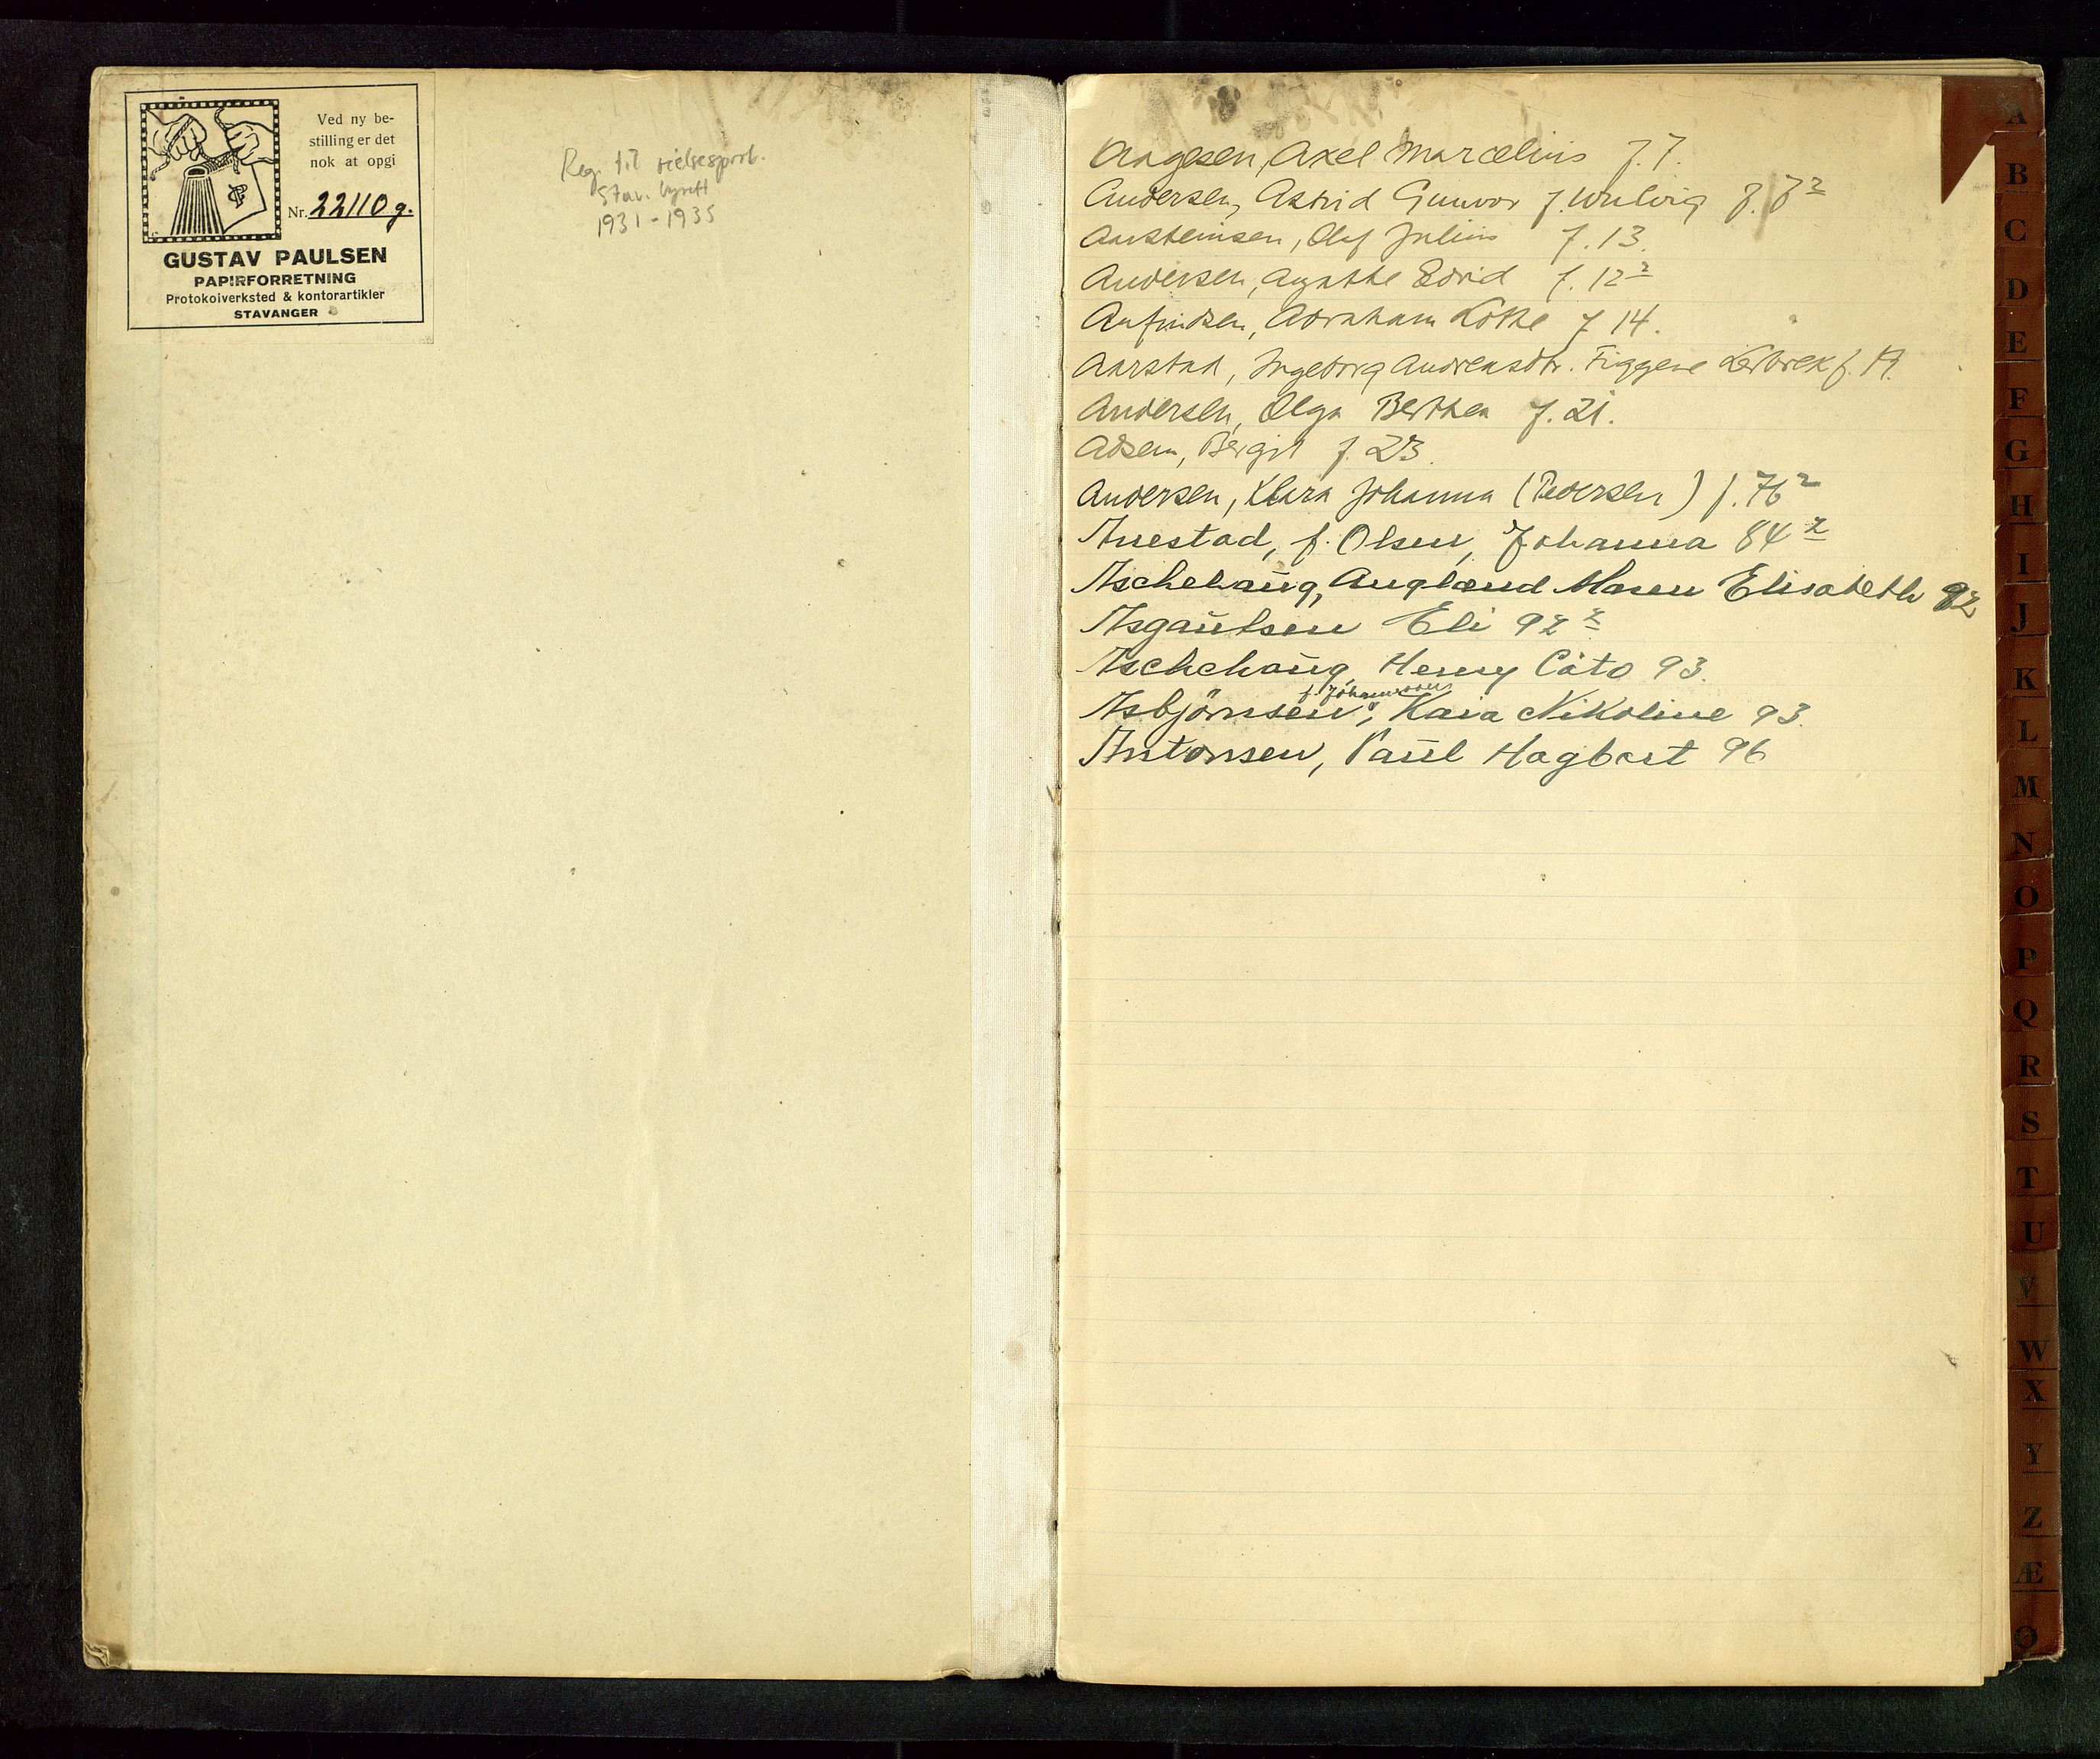 Ved ny be-
stilling er det
nok at opgi
Nr. 22110 g.
GUSTAV PAULSEN
PAPIRFORRETNING
Protokolverksted & kontorartikler
STAVANGER
Reg. til vielsesprot.
Stav. byrett
1931 - 1935
Aagesen, Axel Marcelius f. 7.
Andersen, Astrid Gunvor f. Wulvig f. 7²
Aarsteinsen, Olaf Julius f. 13.
Andersen, Agathe Edvid f. 12²
Anfindsen, Abraham Lothe f 14.
Aarstad, Ingeborg Andreasdtr. Figgene f.
Andersen, Olga Berthea f. 21.
Adsem, Bergit f. 23.
Andersen, Klara Johanna (Pedersen) f. 76²
Anestad, f. Olsen, Johanna 84²
Aschehaug, Augland Maren Elisabeth 92
Asgautsen Eli 92²
Aschehaug, Henry Cato 93.
f. Johannesen
Asbjörnsen, Kaia Nikoline 93.
Antonsen, Paul Hagbart 96
A
B
C
D
E
F
G
H
I
J
K
L
M
N
O
P
Q
R
S
T
U
V
W
X
Y
Z
Æ
Ø